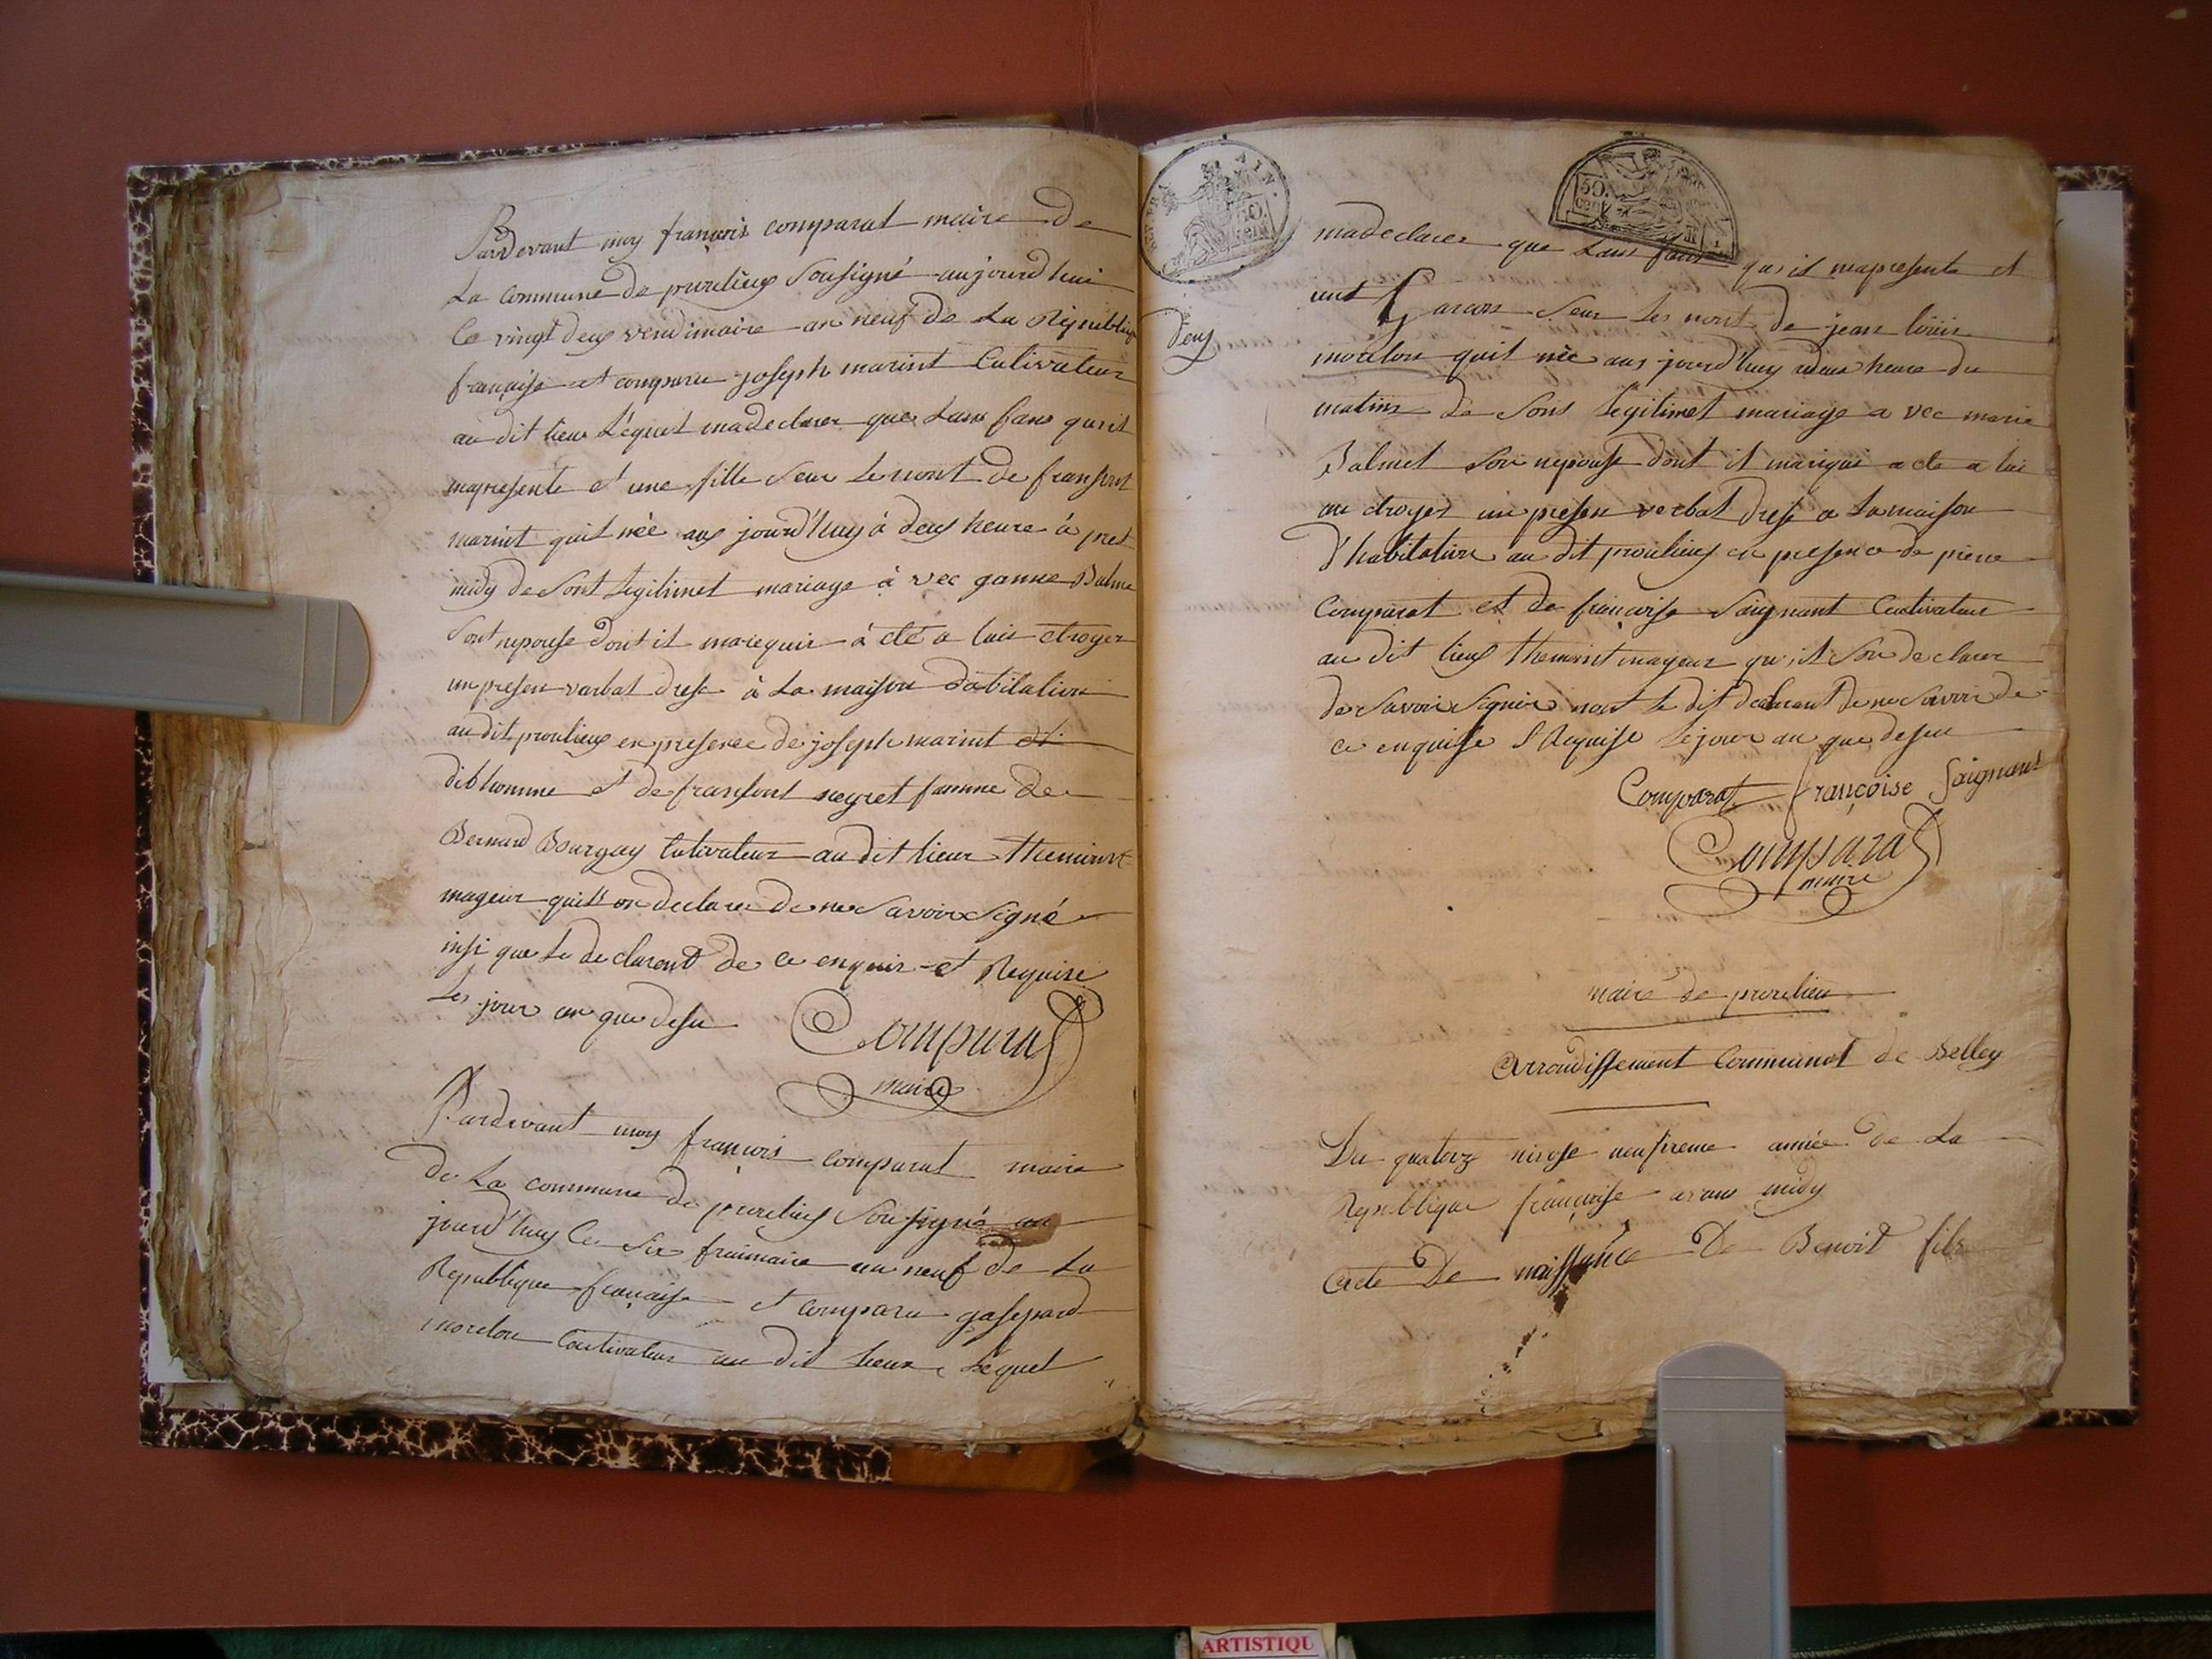 Pardevant moy françois comparat maire De
La commune de proulieux Sousigné aujourd huis
Ce vingt deux vendimaire an neuf De La Republique
française et comparu joseph marint Cultivateur
au dit lieux Lequel madeclarer que Lans fans quil
mapresente et une fille Seur Le nont de fransont
marint quil née aux jourd'huy à deux heure à pret
midy de Sont Legitimet mariage à vec ganne Balme
Sont nepouse Dont il marequir à cté a luis ctroyer
un presen varbat drese à La maison Dabitation
audit proulieux en presence de joseph marint dt
dibhomme et de fransont neyret famme De
Bernard Bourgay Cultivateur au dit lieux themoint
mageur quils on declarer de ne Savoir Signé
insi que Le declarent de ce enquir et Requise
Les jour an que desu Comparat
maire
Pardevant moy françois comparat maire
de La commune de proulieux Sousigné au
jourd'huy Ce Six frimaire an neuf de La
Republique française et comparu gaspard
morelon Coultivateur au dit lieux Lequel
AIN.
50.
CENT
50.
CENT
deux
madeclarer que Lans fans qu'il mapresente et
unt Garcon Seur Les nont de jean louis
morelon quil née aux jourd'huy deux heure du
matins de Sons Legitimet mariage a vec marie
Balmet Son nepouse dont il mariquis a cte a luis
au ctroyer un presen verbat drese a La maison
D'habitation au dit proulieux en presence de pierre
Comparat et de françoise Saignant Cultivateur
au dit lieux themoint mageur qu'il Son declarer
de Savoir Signer nont le dit declarant de ne Savoir de
ce enquise et Requise Le jour an que desu
Comparat françoise Saignant
Comparat
maire
maire de proulieu
Arrondissement Communal de Belley
Du quatorz nivose neufieme année de La
Republique française avans midy
Acte De naissance De Benoit fils
ARTISTIQU